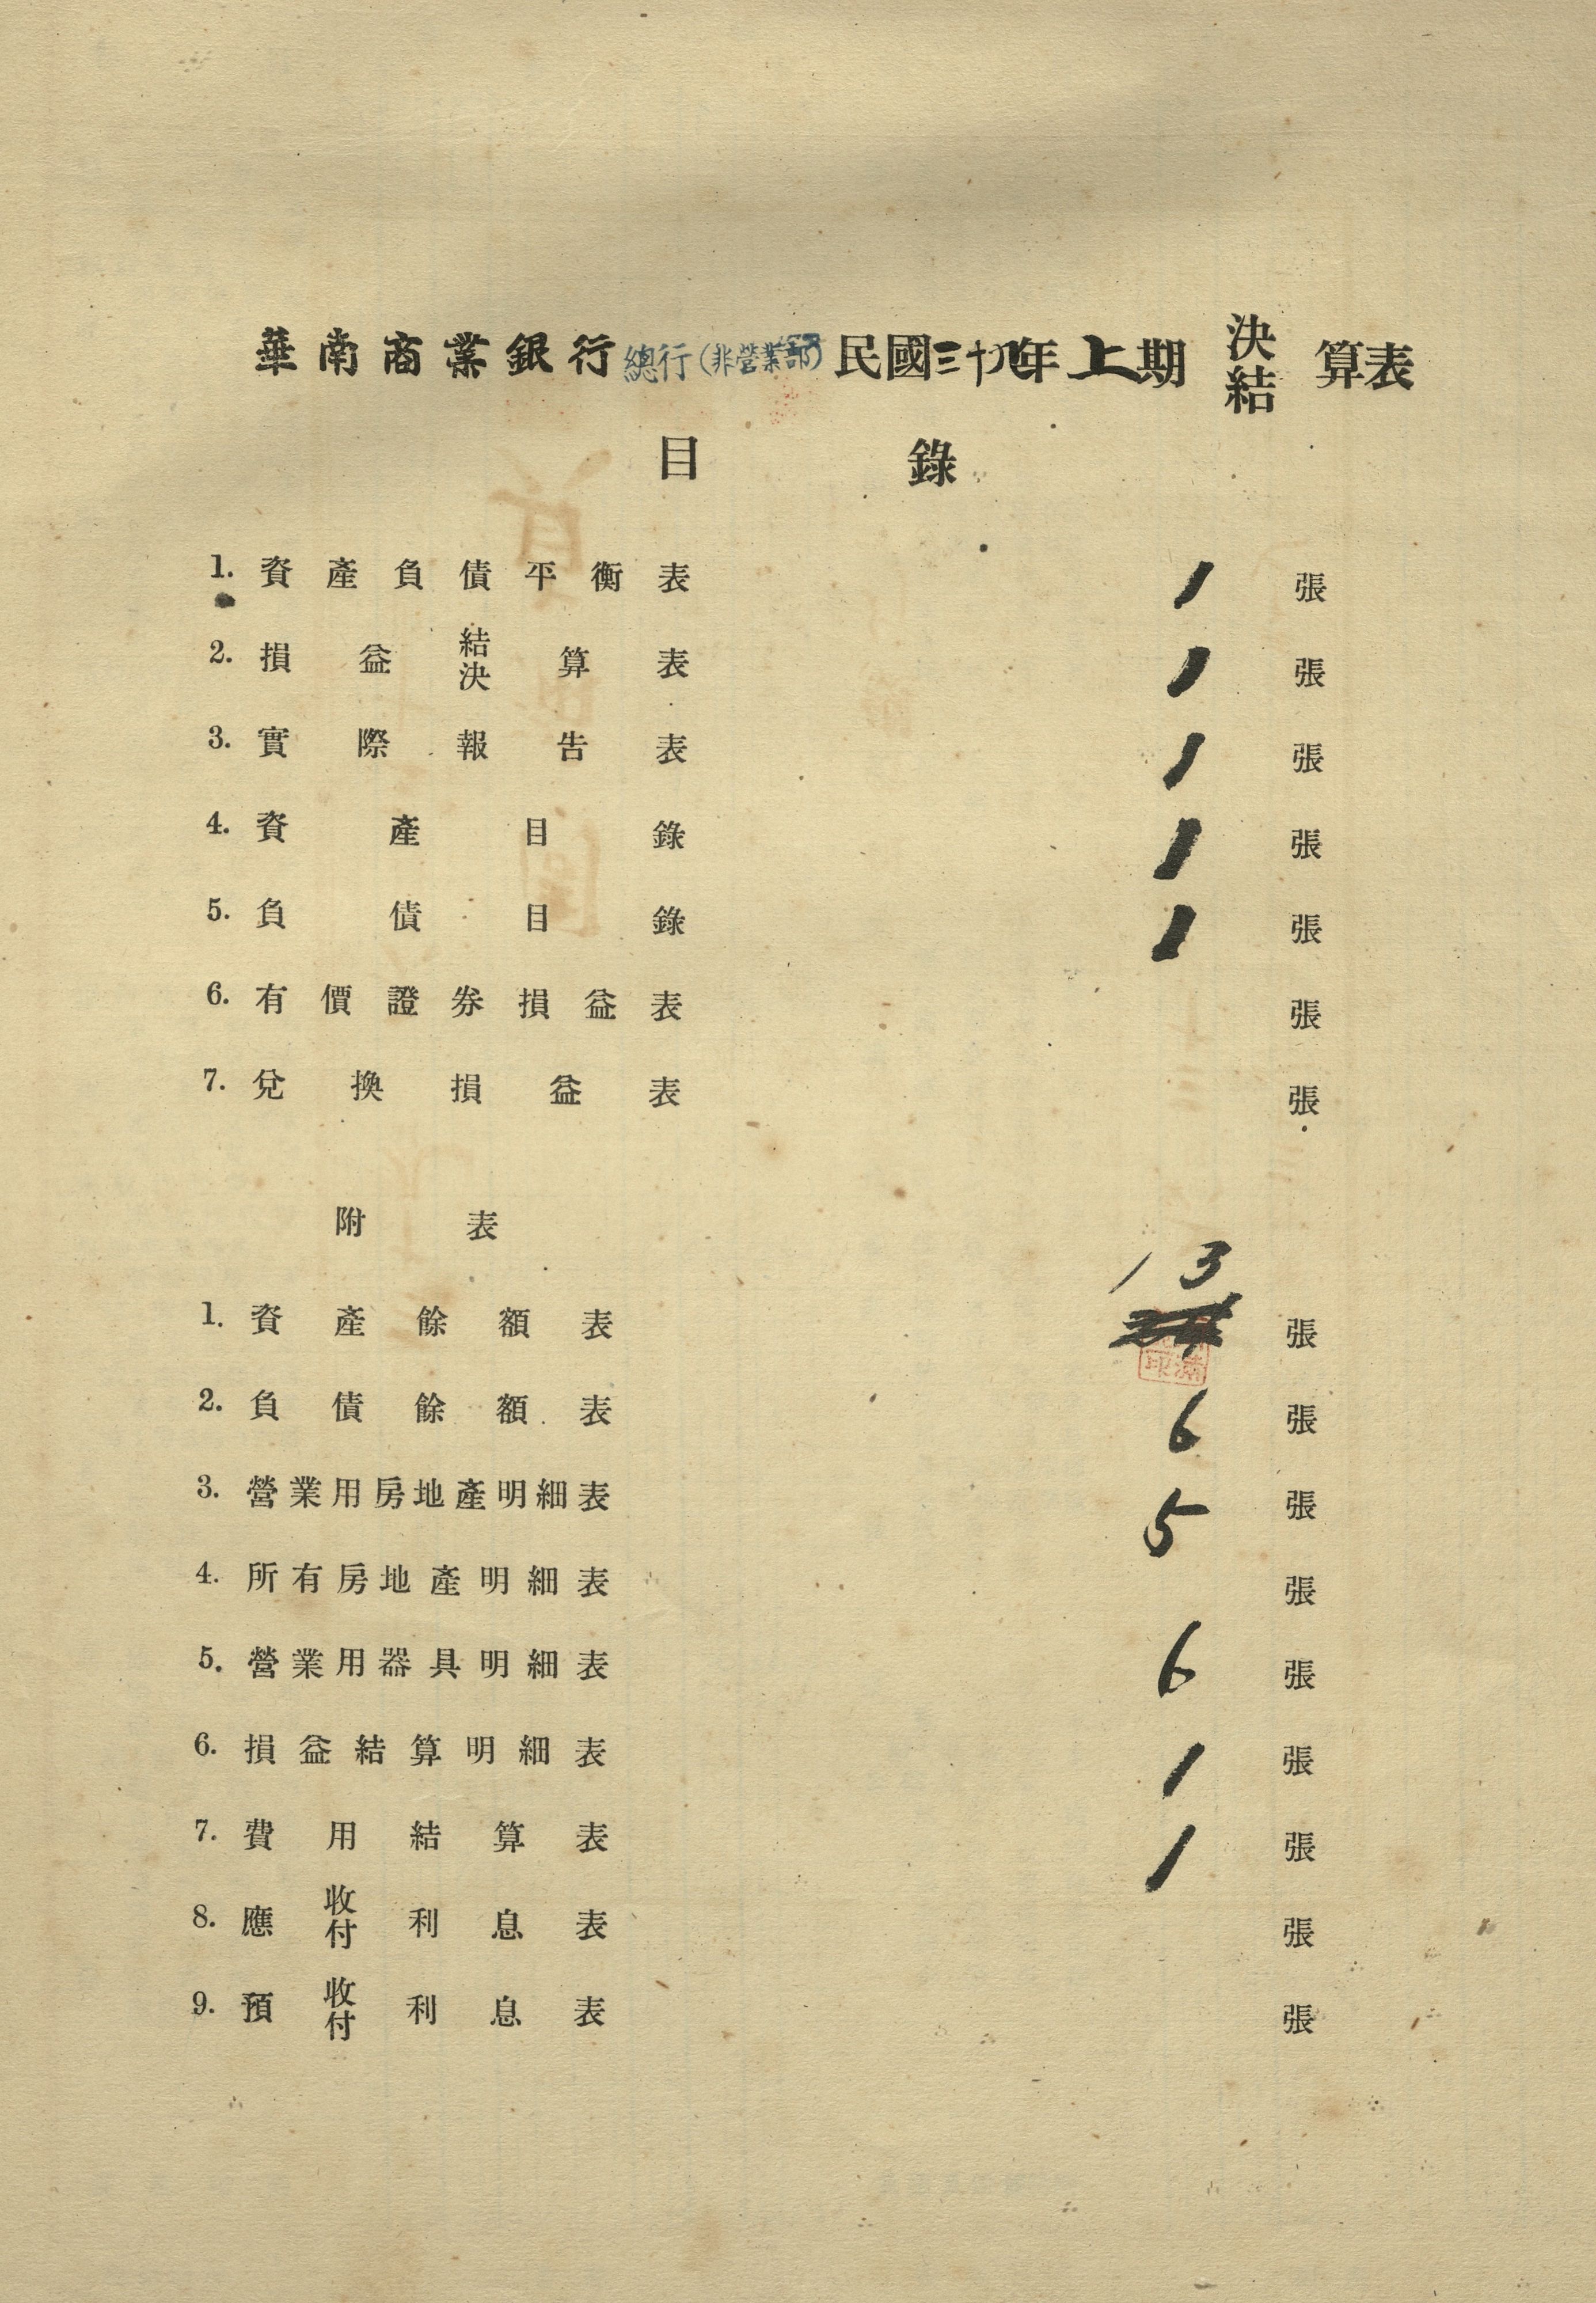 華南商業銀行總行(非營業部)民國三十九年上期決結算表
目錄
1. 資產負債平衡表 1 張
2. 損益結決算表 1 張
3. 實際報告表 1 張
4. 資產目錄 1 張
5. 負債目錄 1 張
6. 有價證券損益表 張
7. 兌換損益表 張
附表
13
1. 資產餘額表 張
2. 負債餘額表 6 張
3. 營業用房地產明細表 5 張
4. 所有房地產明細表 張
5. 營業用器具明細表 6 張
6. 損益結算明細表 1 張
7. 費用結算表 1 張
8. 應收付利息表 張
9. 預收付利息表 張